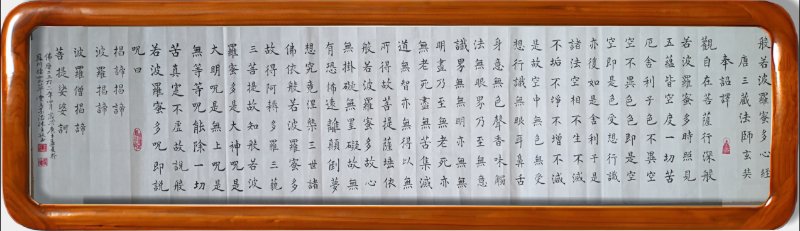 般若波羅蜜多心經
唐三藏法師玄奘
奉詔譯
觀自在菩薩行深般
若波羅蜜多時照見
五蘊皆空度一切苦
厄舍利子色不異空
空不異色色即是空
空即是色受想行識
亦復如是舍利子是
諸法空相不生不滅
不垢不淨不增不減
是故空中無色無受
想行識無眼耳鼻舌
身意無色聲香味觸
法無眼界乃至無意
識界無無明亦無無
明盡乃至無老死亦
無老死盡無苦集滅
道無智亦無得以無
所得故菩提薩埵依
般若波羅蜜多故心
無掛礙無罣礙故無
有恐怖遠離顛倒夢
想究竟涅槃三世諸
佛依般若波羅蜜多
故得阿耨多羅三藐
三菩提故知般若波
羅蜜多是大神呪是
大明呪是無上呪是
無等等呪能除一切
苦真實不虛故說般
若波羅蜜多呪即說
呪曰
揭諦揭諦
波羅揭諦
波羅僧揭諦
菩提娑婆訶